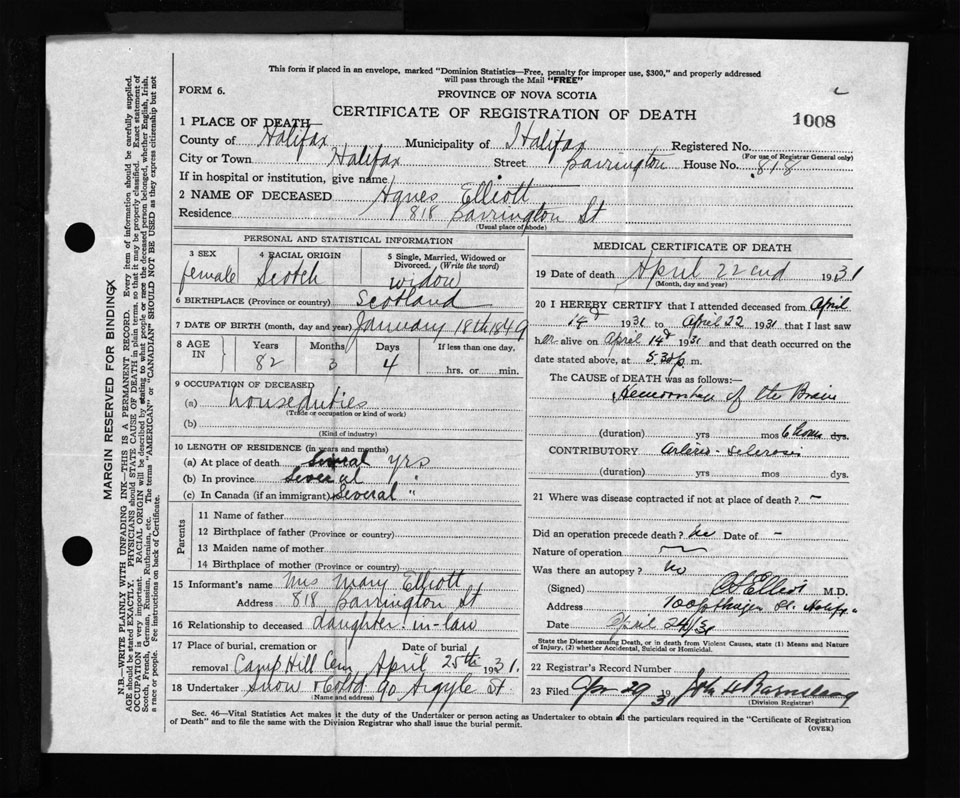 This form if placed in an envelope, marked "Dominion Statistics—Free, penalty for improper use, $300," and properly addressed
will pass through the Mail "FREE"
FORM 6.
PROVINCE OF NOVA SCOTIA
CERTIFICATE OF REGISTRATION OF DEATH
1008
1 PLACE OF DEATH
County of Halifax Municipality of Halifax Registered No.
(For use of Registrar General only)
City or Town Halifax Street Barrington House No. 818
If in hospital or institution, give name
2 NAME OF DECEASED Agnes Elliott
Residence 818 Barrington St
(Usual place of abode)
PERSONAL AND STATISTICAL INFORMATION
3 SEX 4 RACIAL ORIGIN 5 Single, Married, Widowed or
Divorced. (Write the word)
female Scotch widow
6 BIRTHPLACE (Province or country) Scotland
7 DATE OF BIRTH (month, day and year) January 18th 1849
8 AGE IN Years Months Days If less than one day,
82 3 4 hrs. or min.
9 OCCUPATION OF DECEASED
(a) houseduties
(Trade or occupation or kind of work)
(b)
(Kind of industry)
10 LENGTH OF RESIDENCE (in years and months)
(a) At place of death Several yrs
(b) In province Several "
(c) In Canada (if an immigrant) Several "
Parents
11 Name of father
12 Birthplace of father (Province or country)
13 Maiden name of mother
14 Birthplace of mother (Province or country)
15 Informant's name Mrs Mary Elliott
Address 818 Barrington St
16 Relationship to deceased daughter-in-law
17 Place of burial, cremation or Date of burial
removal Camp Hill Cem April 25th 1931.
18 Undertaker Snow & Co Ltd 90 Argyle St.
(Name and address)
MEDICAL CERTIFICATE OF DEATH
19 Date of death April 22nd 1931
(Month, day and year)
20 I HEREBY CERTIFY that I attended deceased from April
14th 1931 to April 22 1931 that I last saw
her alive on April 14th 1931 and that death occurred on the
date stated above, at 5.30 p. m.
The CAUSE of DEATH was as follows:—
Hemorrhage of the Brain
(duration) yrs mos 6 hours dys.
CONTRIBUTORY Arterio-sclerosis
(duration) yrs. mos. dys.
21 Where was disease contracted if not at place of death? –
Did an operation precede death? No Date of –
Nature of operation
Was there an autopsy? No
(Signed) Elliot M.D.
Address
Date April 24/31
State the Disease causing Death, or in death from Violent Causes, State (1) Means and Nature
of Injury, (2) whether Accidental, Suicidal or Homicidal.
22 Registrar's Record Number
23 Filed Apr 29 1931 John H Barnstead
(Division Registrar)
Sec. 46—Vital Statistics Act makes it the duty of the Undertaker or person acting as Undertaker to obtain all the particulars required in the "Certificate of Registration
of Death" and to file the same with the Division Registrar who shall issue the burial permit.
(OVER)
MARGIN RESERVED FOR BINDING
N.B.—WRITE PLAINLY WITH UNFADING INK—THIS IS A PERMANENT RECORD. Every item of information should be carefully supplied.
AGE should be stated EXACTLY. PHYSICIANS should STATE CAUSE OF DEATH in plain terms, so that it may be properly classified. Exact statement of
OCCUPATION is very important. RACIAL ORIGIN will be described by stating to what people or race the deceased person belonged, whether English, Irish,
Scotch, French, German, Russian, Ruthenian, etc. The terms "AMERICAN" or "CANADIAN" SHOULD NOT BE USED as they express citizenship but not
a race or people. See instructions on back of Certificate.